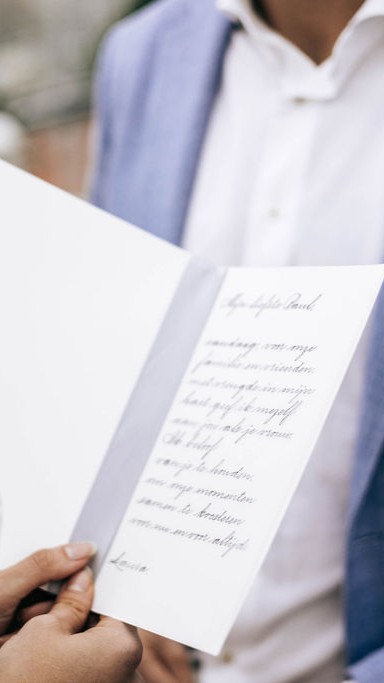 Mijn liefste Paul,
vandaag, voor onze
familie en vrienden,
met vreugde in mijn
hart geef ik mezelf
aan jou als je vrouw.
Ik beloof
van je te houden,
om onze momenten
samen te koesteren
voor nu en voor altijd.
Laura,